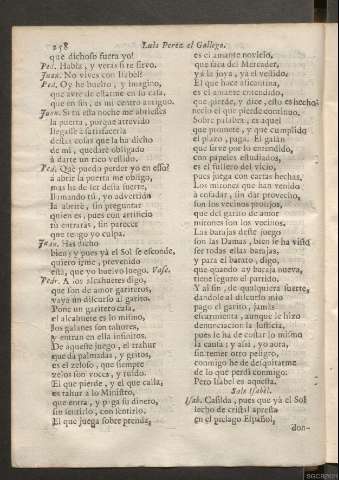 258 Luis Perez el Gallego.
que dichoso fuera yo!
Ped. Habla, y verás si te sirvo.
Juan. No vives con Isabèl?
Ped. Oy he buelto, y imagino,
que avrè de estarme en su casa,
que en fin, es mi centro antiguo.
Juan. Si tu esta noche me abriesses
la puerta, porque atrevido
llegasse à satisfacerla
destas cosas que la ha dicho
de mi, quedare obligado
à darte un rico vestido.
Ped. Què puedo perder yo en esso?
à abrir la puerta me obligo,
mas ha de ser desta suerte,
llamando tù, yo advertido
la abrirè, sin preguntar
quien es, pues con artificio
tu entraràs, sin parecer
que tengo yo culpa.
Juan. Has dicho
bien; y pues yà el Sol se esconde,
quiero irme, prevenido
està, que yo buelvo luego. Vase.
Pedr. A los alcahuetes digo,
que son de amor gariteros,
vaya un discurso al garito.
Pone un garitero casa,
el alcahuete es lo mismo,
los galanes son tahures,
y entran en ella infinitos.
De aqueste juego, el tahur
que dà palmadas, y gritos,
es el zeloso, que siempre
zelos son vozes, y ruido.
El que pierde, y el que calla,
es tahur à lo Ministro,
que entra, y paga su dinero,
sin sentirlo, con sentirlo.
El que juega sobre prenda,
es el amante novicio,
que saca del Mercader,
yà la joya, yà el vestido.
El que hace alicantina,
es el amante entendido,
que pierde, y dice, esto es hecho
necio el que pierde continuo.
Sobre palabra, es aquel
que promete, y que cumplido
el plazo, paga. El galàn
que sirve por lo entendido,
con papeles estudiados,
es el fullero del vicio,
pues juega con cartas hechas.
Los mirones que han venido
à enfadar, sin dàr provecho,
son los vecinos prolijos,
que del garito de amor
mirones son los vecinos.
Las barajas deste juego
son las Damas, bien se ha visto
ser todas ellas barajas,
y para el barato, digo,
que quando ay baraja nueva,
tiene seguro el partido.
Y al fin, de qualquiera suerte,
dandole al discurso mio
pago el garito, jamàs
escarmienta, aunque le hizo
denunciacion la Justicia,
pues le ha de costar lo mismo
la causa; y assi, yo aora,
sin temer otro peligro,
conmigo he de desquitarme
de lo que perdì conmigo:
Pero Isabèl es aquesta.
Sale Isabèl.
Isab. Casilda, pues que yà el Sol
lecho de cristal apresta
en el pielago Español,
don-